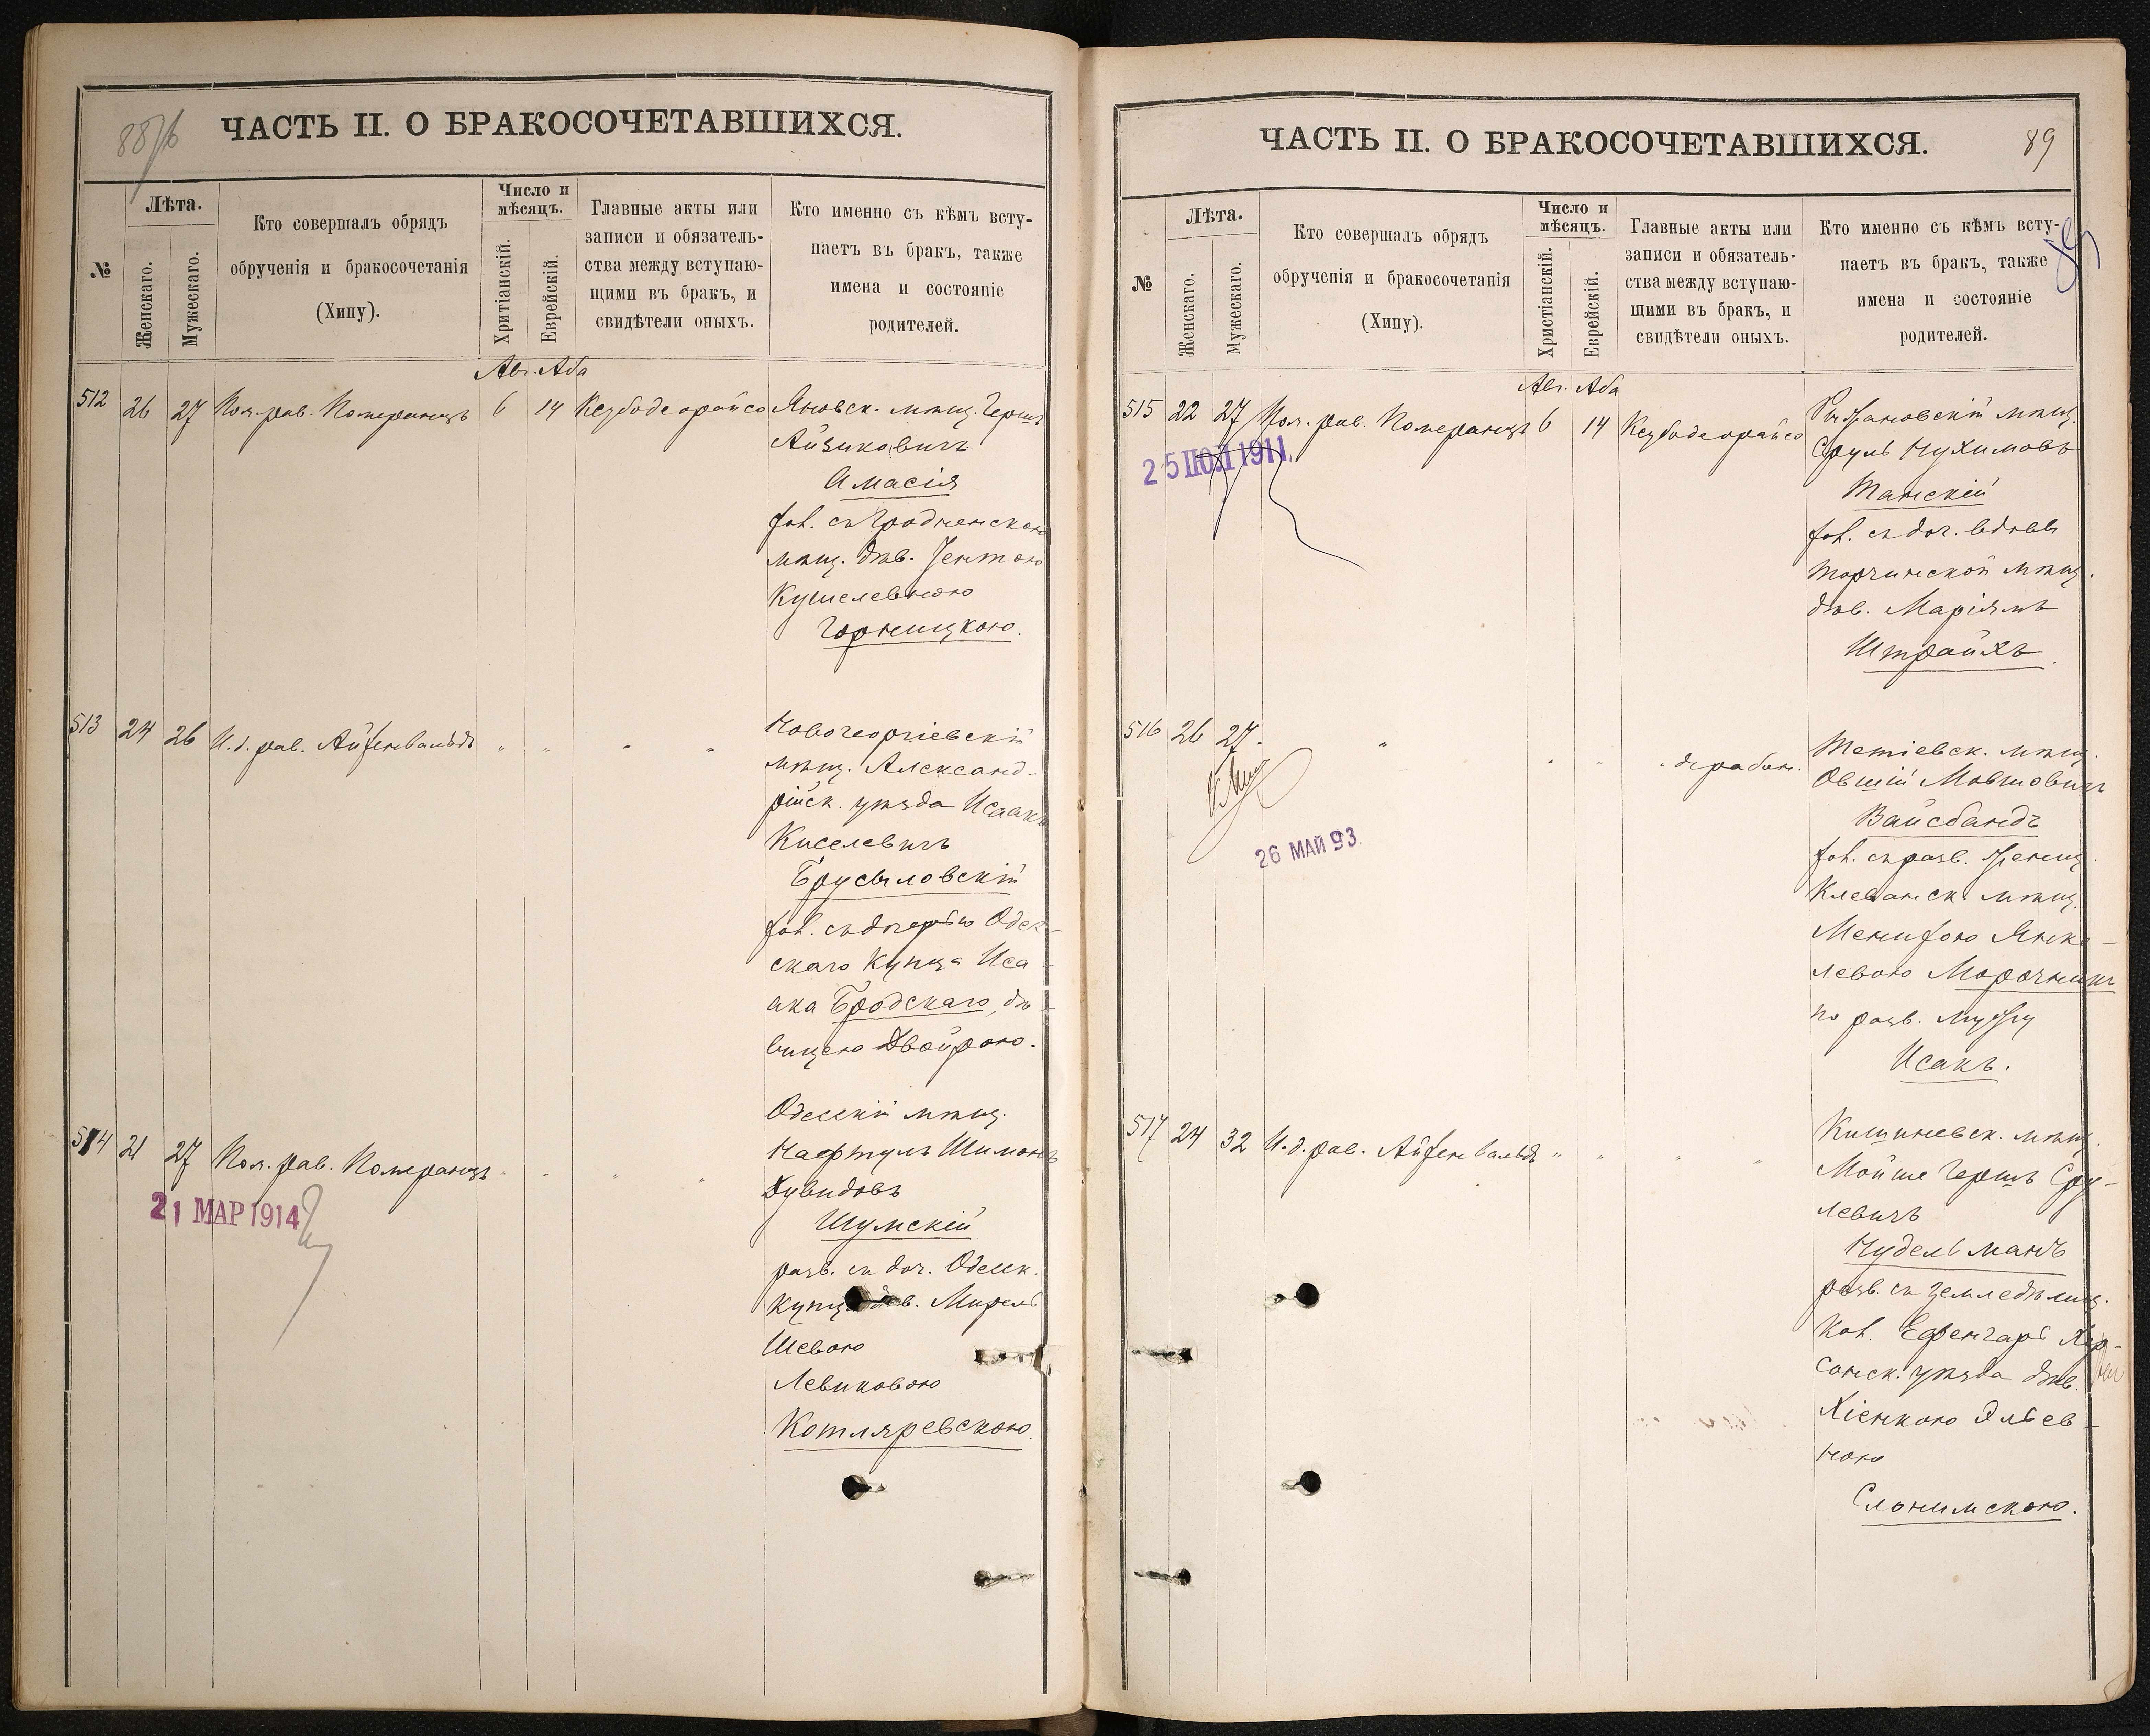 88/б
ЧАСТЬ II. О БРАКОСОЧЕТАВШИХСЯ.
№
Лѣта.
Женскаго.
Мужескаго.
Кто совершалъ обрядъ
обрученія и бракосочетанія
(Хипу).
Число и
мѣсяцъ.
Хритіанскій.
Еврейскій.
Главные акты или
записи и обязатель-
ства между вступаю-
щими въ бракъ, и
свидѣтели оныхъ.
Кто именно съ кѣмъ всту-
паетъ въ бракъ, также
имена и состояніе
родителей.
Авг. Аба
512 26 27 Пом. рав. Померанцъ 6 14 Кезубодеорайсо Яновск. мѣщ. Гершъ
Айзиковичъ
Амасія
хол. съ Гродненскою
мѣщ. дѣв. Гентою
Кушелевною
Горницкою.
513 24 26 И. д. рав. Айзенвальдъ " " " " Новогеоргіевскій
мѣщ. Александ-
рійск. уѣзда Исаакъ
Киселевичъ
Брусиловскій
хол. съ дочерью Одес-
скаго купца Иса-
ака Бродскаго, дѣ-
вицею Двойрою.
514 21 27 Пом. рав. Померанцъ " " " " Одесскій мѣщ.
Нафтулъ Шимонъ
Дувидовъ
Шумскій
разв. съ доч. Одесск.
купц. дѣв. Мирель
Шевою
Левиковою
Котляревскою.
21 МАР 1914
ЧАСТЬ II. О БРАКОСОЧЕТАВШИХСЯ.
89
89
№
Лѣта.
Женскаго.
Мужескаго.
Кто совершалъ обрядъ
обрученія и бракосочетанія
(Хипу).
Число и
мѣсяцъ.
Христіанскій.
Еврейскій.
Главные акты или
записи и обязатель-
ства между вступаю-
щими въ бракъ, и
свидѣтели оныхъ.
Кто именно съ кѣмъ всту-
паетъ въ бракъ, также
имена и состояніе
родителей.
Авг. Аба
515 22 27 Пом. рав. Померанцъ 6 14 Кезубодеорайсо Ржановскій мѣщ.
Сруль Нухимовъ
Танскій
хол. съ доч. вдовы
Торчинской мѣщ.
дѣв. Маріямъ
Штрайхъ.
25 ІЮЛ 1911
516 26 27. " " " " дерабон. Тетіевск. мѣщ.
Овшій Мовшовичъ
Вайсбандъ
хол. съ разв. женщ.
Клеванск. мѣщ.
Менихою Янке-
левою Морочникъ
по разв. мужу
Исакъ.
26 МАЙ 93
517 24 32 И. д. рав. Айзенвальдъ " " " " Кишиневск. мѣщ.
Мойше Гершъ Сру-
левичъ
Нудельманъ
разв. съ земледѣлиц.
кол. Ефенгаръ Хер-
сонск. уѣзда дѣв.
Хіенкою Эльев-
ною
Слонимскою.